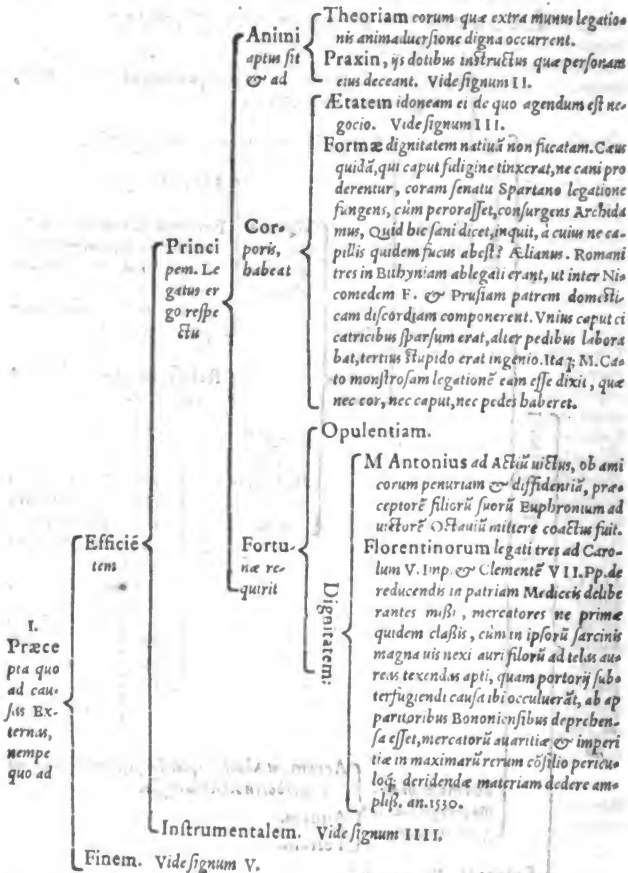 Theoriam eorum quæ extra munus legatio-
nis animaduersione digna occurrent.
Praxin, ijs dotibus instructus quæ personam
eius deceant. Vide signum II.
Animi
aptus sit
& ad
Ætatem idoneam ei de quo agendum est ne-
gocio. Vide signum III.
Formæ dignitatem natiuã non fucatam. Cæus
quidã, qui caput fuligine tinxerat, ne cani pro
derentur, coram senatu Spartano legatione
fungens, cùm perorasset, consurgens Archida
mus, Quid hic sani dicet, inquit, à cuius ne ca-
pillis quidem fucus abest? Ælianus. Romani
tres in Bithyniam ablegati erant, ut inter Ni-
comedem F. & Prusiam patrem domesti-
cam discordiam componerent. Vnius caput ci
catricibus sparsum erat, alter pedibus labora
bat, tertius stupido erat ingenio. Itaq; M. Ca-
to monstrosam legationẽ eam esse dixit, quæ
nec cor, nec caput, nec pedes haberet.
Cor-
poris,
habeat
Princi
pem. Le
gatus er
go respe
ctu
Opulentiam.
M Antonius ad Actiũ uictus, ob ami
corum penuriam & diffidentiã, præ-
ceptorẽ filiorũ suorũ Euphronium ad
uictorẽ Octauiũ mittere coactus fuit.
Florentinorum legati tres ad Caro-
lum V. Imp. & Clementẽ VII. Pp. de
reducendis in patriam Mediceis delibe
rantes missi, mercatores ne primæ
quidem classis, cùm in ipsorũ sarcinis
magna uis nexi auri filorũ ad telas au-
reas texendas apti, quam portorij sub-
terfugiendi causa ibi occuluerãt, ab ap
paritoribus Bononiensibus deprehen-
sa esset, mercatorũ auaritiæ & imperi
tiæ in maximarũ rerum cõsilio pericu-
loq; deridendæ materiam dedere am-
pliss. an. 1530.
Dignitatem:
Fortu-
næ re-
quirit
Efficiẽ
tem
Instrumentalem. Vide signum IIII.
I.
Præce
pta quo
ad cau-
sas Ex-
ternas,
nempe
quo ad
Finem. Vide signum V.